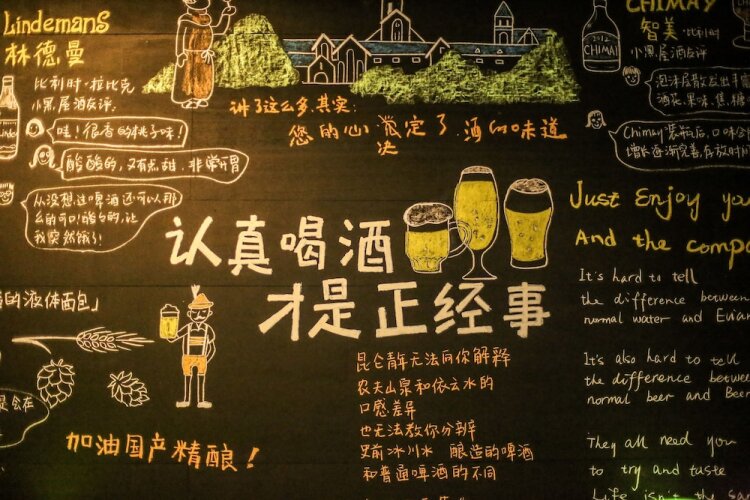 Lindemans
林德曼
比利时·拉比克
小黑屋酒友评:
哇!很香的桃子味!
酸酸的,又有点甜,非常开胃
从没想过啤酒还可以那
么的可口!酸白的,让
我突然饿了!
讲了这么多,其实:
您的心 决定了,酒的味道
CHIMAY
智美·比利时
小黑屋酒友评:
CHIMAI
泡沫层散发出
酒花,果味,焦糖
Chimay装瓶后,口味会
增长逐渐完善,存放时间
认真喝酒
才是正经事
的液体面包」
是会在
加油国产精酿!
昆仑青年无法向你解释
农夫山泉和依云水的
口感差异
也无法教你分辨
史前冰川水 酿造的啤酒
和普通啤酒的不同
Just Enjoy you
And the compa
It's hard to tell
the difference between
normal water and Evian
It's also hard to tell
the difference betwee
normal beer and Beer
They all need you
to try and taste
Life isn't the